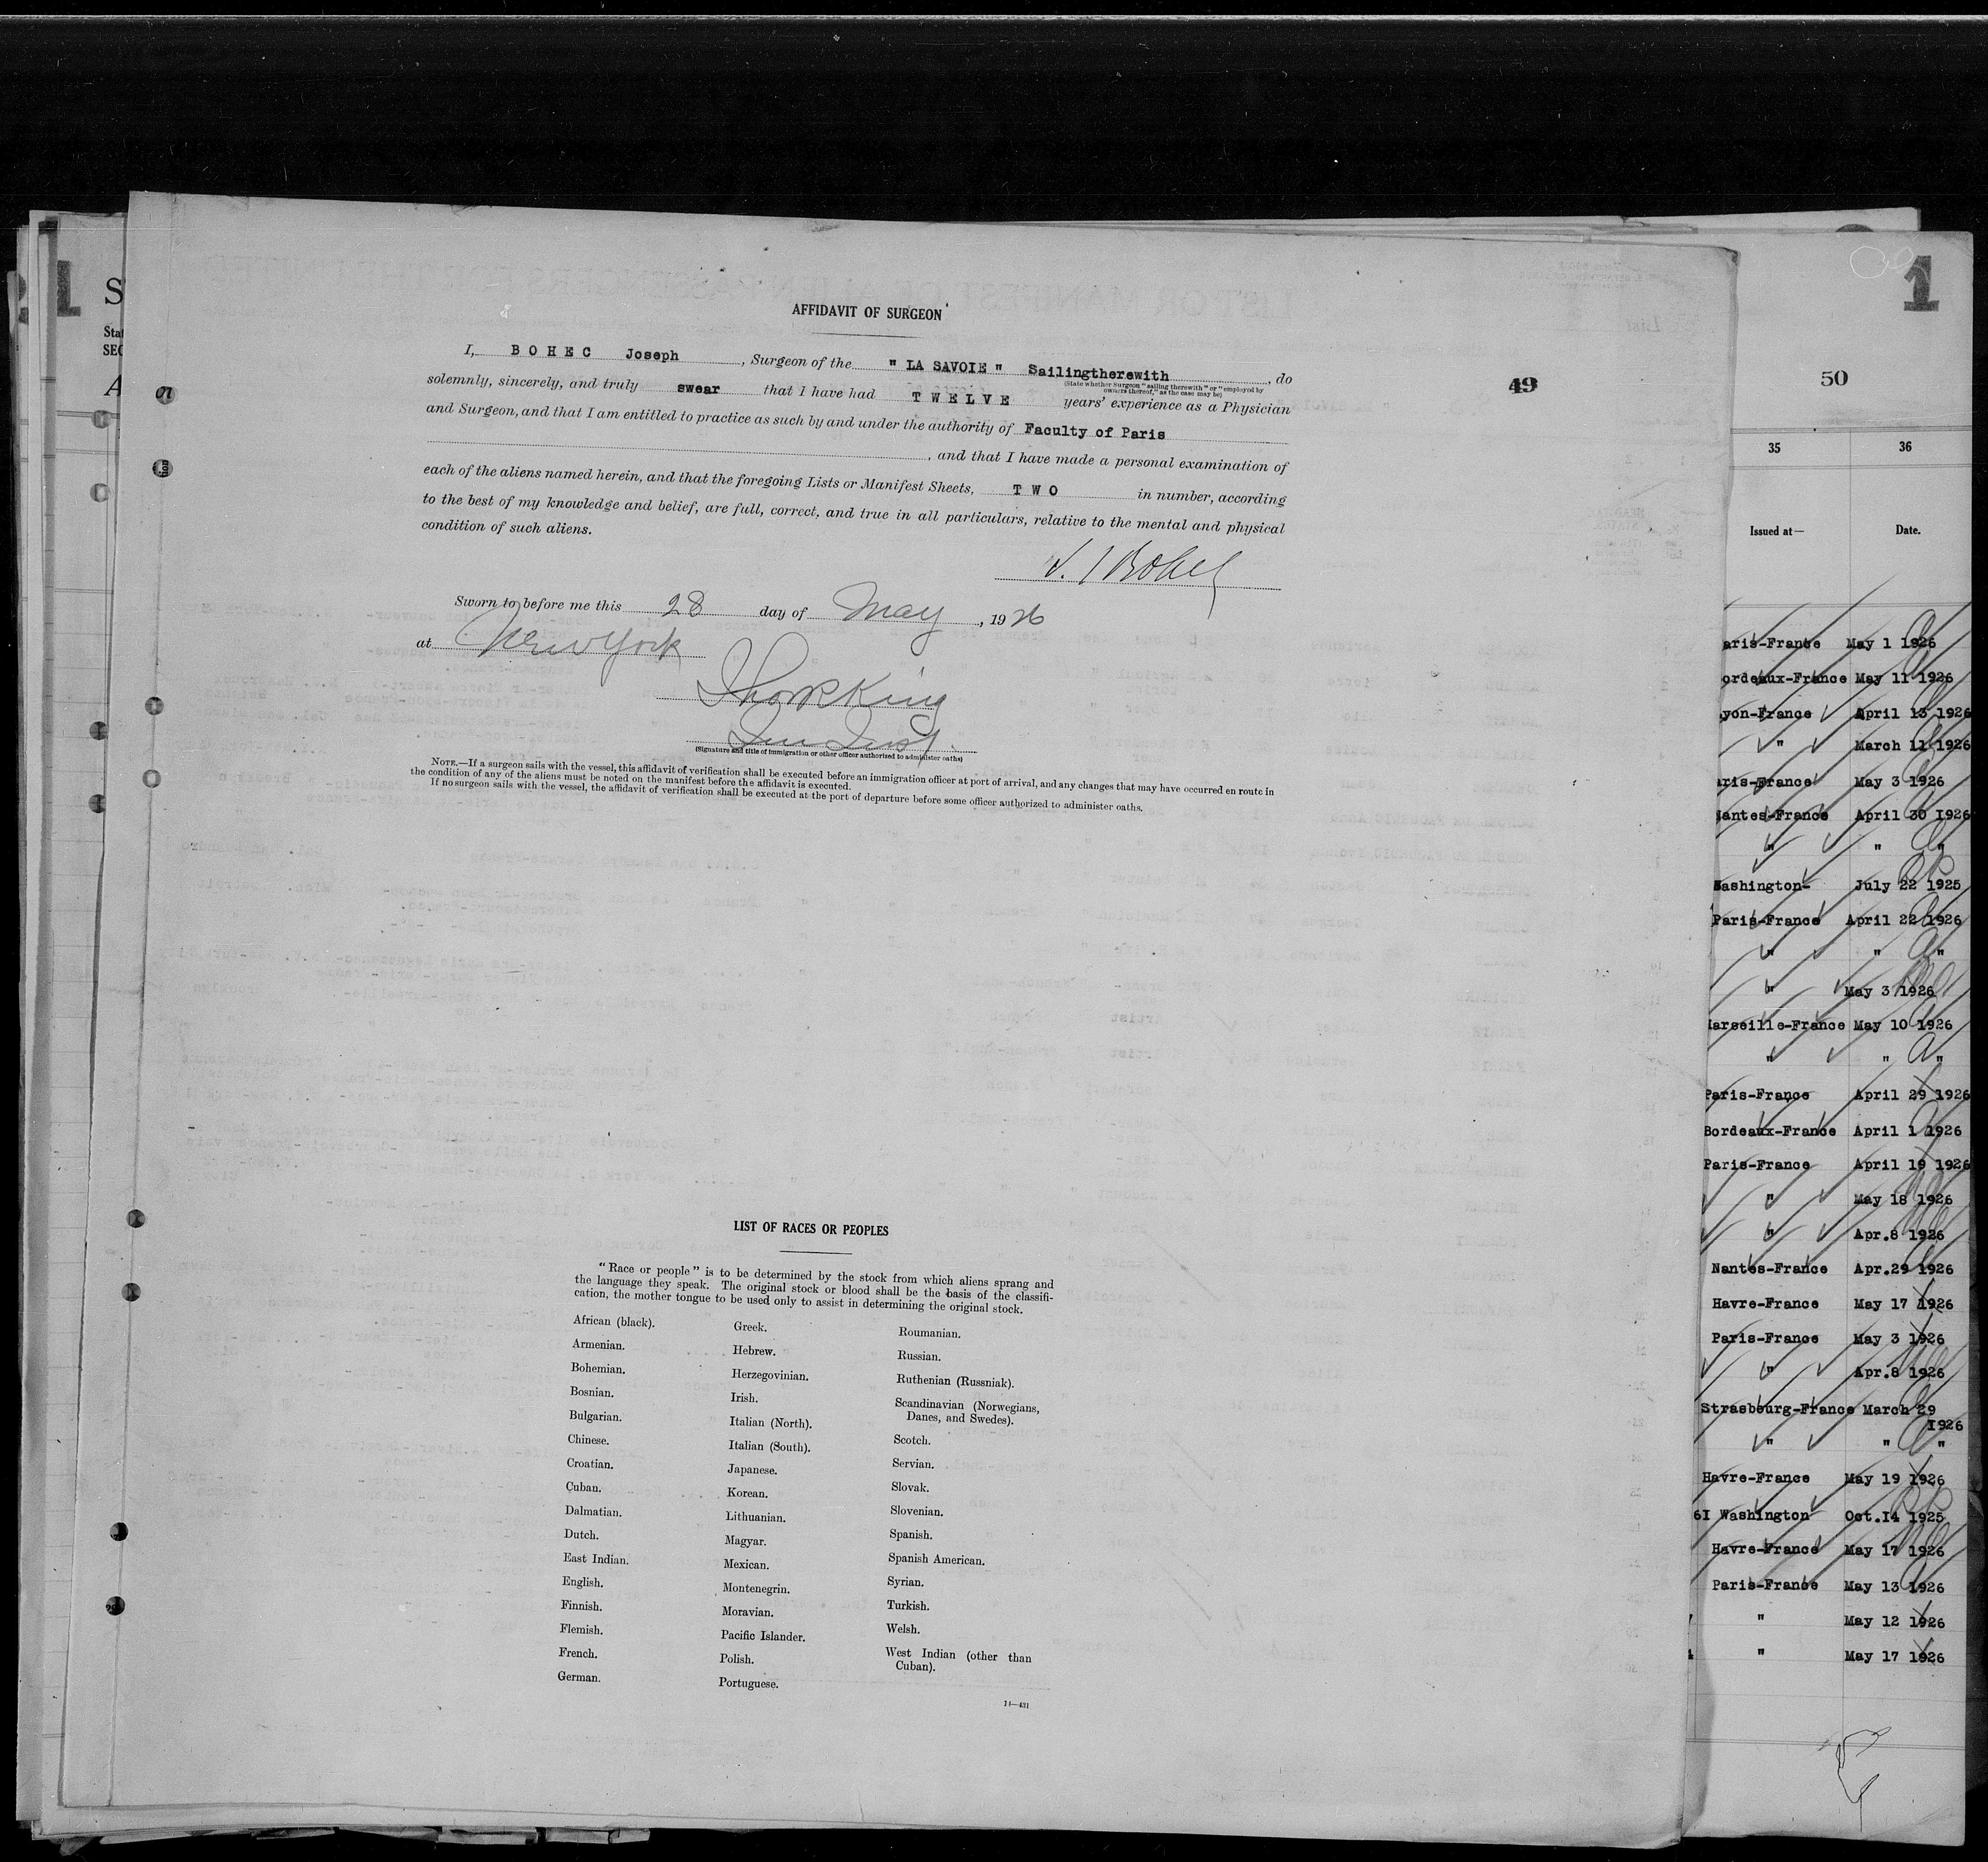 AFFIDAVIT OF SURGEON
I, BOHEC Joseph, Surgeon of the " LA SAVOIE " Sailingtherewith, do
(State whether Surgeon "sailing therewith" or "employed by
owners thereof," as the case may be)
solemnly, sincerely, and truly swear that I have had TWELVE years' experience as a Physician
and Surgeon, and that I am entitled to practice as such by and under the authority of Faculty of Paris
, and that I have made a personal examination of
each of the aliens named herein, and that the foregoing Lists or Manifest Sheets, TWO in number, according
to the best of my knowledge and belief, are full, correct, and true in all particulars, relative to the mental and physical
condition of such aliens.
Sworn to before me this 28 day of May, 1926
at New York
(Signature and title of immigration or other officer authorized to administer oaths)
NOTE.—If a surgeon sails with the vessel, this affidavit of verification shall be executed before an immigration officer at port of arrival, and any changes that may have occurred en route in
the condition of any of the aliens must be noted on the manifest before the affidavit is executed.
If no surgeon sails with the vessel, the affidavit of verification shall be executed at the port of departure before some officer authorized to administer oaths.
49
LIST OF RACES OR PEOPLES
"Race or people" is to be determined by the stock from which aliens sprang and
the language they speak. The original stock or blood shall be the basis of the classifi-
cation, the mother tongue to be used only to assist in determining the original stock.
African (black).
Armenian.
Bohemian.
Bosnian.
Bulgarian.
Chinese.
Croatian.
Cuban.
Dalmatian.
Dutch.
East Indian.
English.
Finnish.
Flemish.
French.
German.
Greek.
Hebrew.
Herzegovinian.
Irish.
Italian (North).
Italian (South).
Japanese.
Korean.
Lithuanian.
Magyar.
Mexican.
Montenegrin.
Moravian.
Pacific Islander.
Polish.
Portuguese.
Roumanian.
Russian.
Ruthenian (Russniak).
Scandinavian (Norwegians,
Danes, and Swedes).
Scotch.
Servian.
Slovak.
Slovenian.
Spanish.
Spanish American.
Syrian.
Turkish.
Welsh.
West Indian (other than
Cuban).
14—431
1
50
35 36
Issued at— Date.
aris-France May 1 1926
ordeaux-France May 11 1926
yon-France April 13 1926
" March 11 1926
aris-France May 3 1926
Nantes-France April 30 1926
" " "
Washington- July 22 1925
Paris-France April 22 1926
" " "
" May 3 1926
Marseille-France May 10 1926
" " "
Paris-France April 29 1926
Bordeaux-France April 1 1926
Paris-France April 19 1926
" May 18 1926
" Apr.8 1926
Nantes-France Apr.29 1926
Havre-France May 17 1926
Paris-France May 3 1926
" Apr.8 1926
Strasbourg-France March 29
1926
" " "
Havre-France May 19 1926
6I Washington Oct.I4 1925
Havre-France May 17 1926
Paris-France May 13 1926
" May 12 1926
" May 17 1926